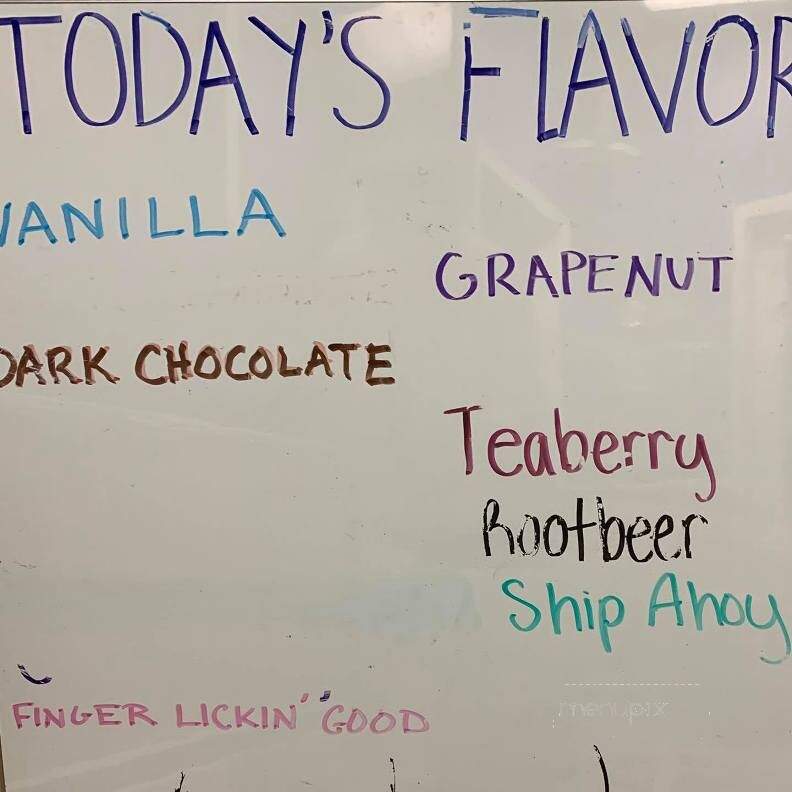 TODAY'S FLAVOR
VANILLA
GRAPENUT
DARK CHOCOLATE
Teaberry
Rootbeer
Ship Ahoy
FINGER LICKIN' GOOD
menupix